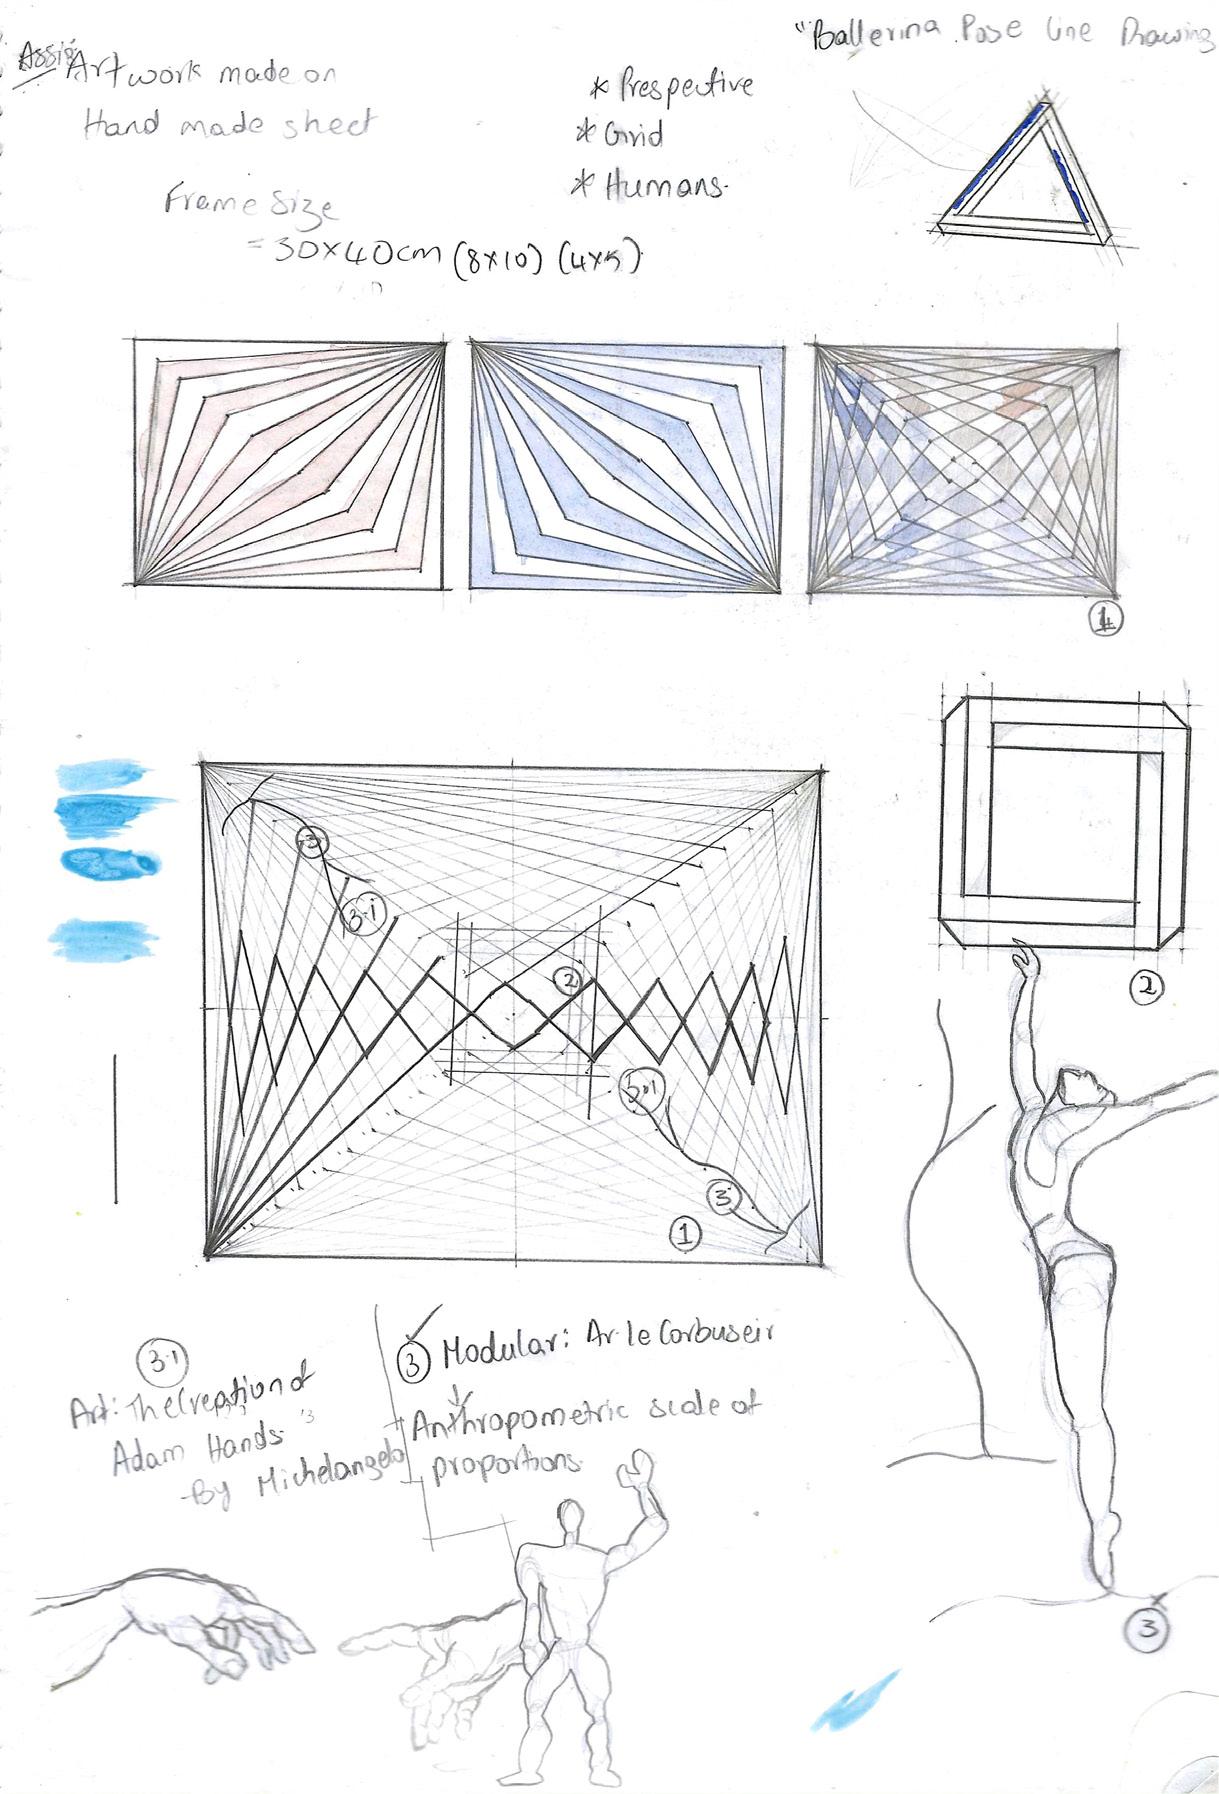 Assig
Artwork made on
Hand made sheet
Frame Size
= 30x40cm (8x10) (4x5)
* Prespective
* Grid
* Humans.
"Ballerina Pose Line Drawing
1
3
3.1
2
3.1
3
1
2
3.1
Art: The Creation of
Adam Hands
-By Michelangelo
3 Modular: Ar. le Corbuseir
Anthropometric scale of
proportions.
3